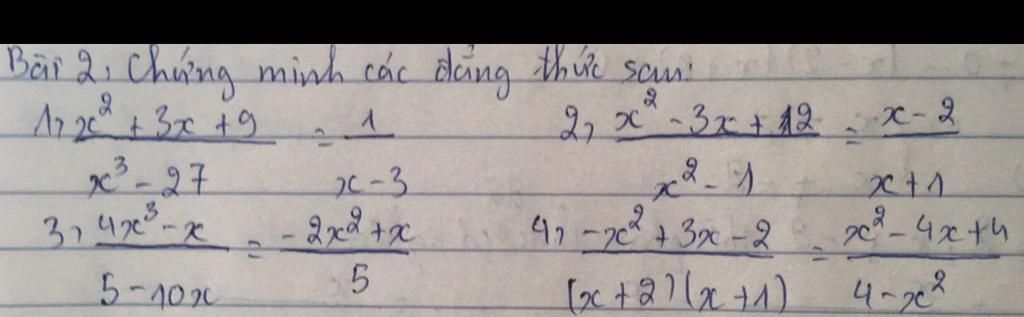 Bài 2, Chứng minh các đẳng thức sau:
1, x² + 3x + 9 / x³ - 27 = 1 / x - 3    2, x² - 3x + 2 / x² - 1 = x - 2 / x + 1
3, 4x³ - x / 5 - 10x = -2x² + x / 5    4, -x² + 3x - 2 / (x + 2)(x + 1) = x² - 4x + 4 / 4 - x²